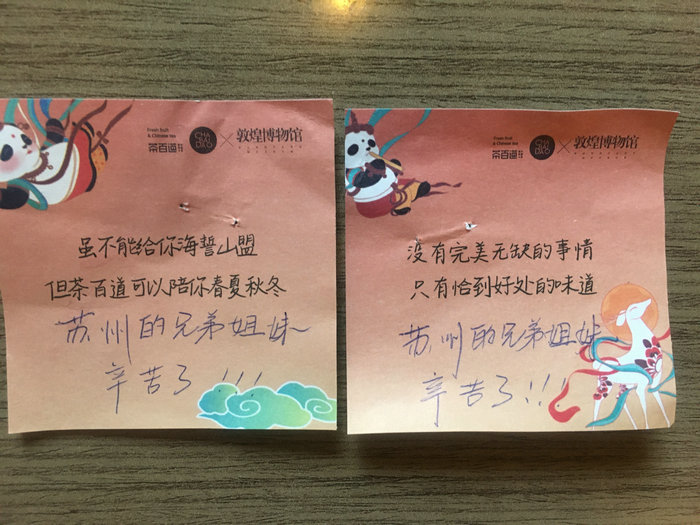 Fresh fruit
& Chinese tea
茶百道
CHA
PAI
DAO
×
敦煌博物馆
虽不能给你海誓山盟
但茶百道可以陪你春夏秋冬
苏州的兄弟姐妹
辛苦了!!!
Fresh fruit
& Chinese tea
茶百道
CHA
PAI
DAO
×
敦煌博物馆
没有完美无缺的事情
只有恰到好处的味道
苏州的兄弟姐妹
辛苦了!!!